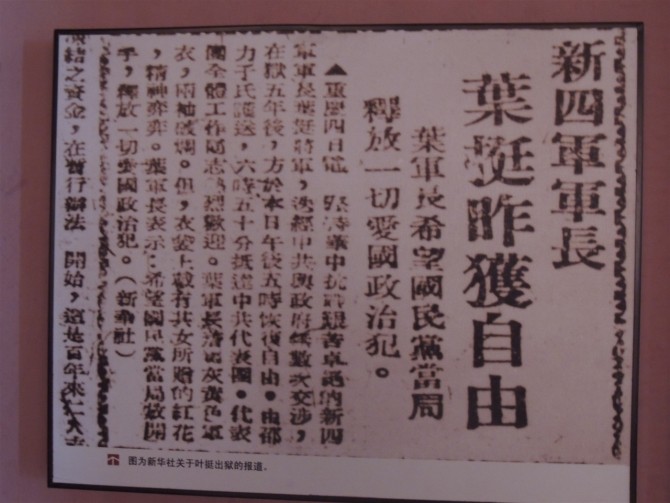 新四軍軍長
葉挺昨獲自由
葉軍長希望國民黨當局
釋放一切愛國政治犯。
▲重慶四日電 堅持華中抗戰艱苦卓遇的新四
軍軍長葉挺將軍，決經中共與政府無數次交涉，
在獄五年後，方於本日午後五時恢復自由。由邵
力子氏護送，六時五十分抵達中共代表團。代表
團全體工作同志熱烈歡迎。葉軍長著灰黃色軍
衣，兩袖破爛。但，衣襟上戴有其女所贈的紅花
，精神弈弈。葉軍長表示：希望國民黨當局放開
手，釋放一切愛國政治犯。（新華社）
結之資金，在暫行辦法 開始，還是百年來二大
图为新华社关于叶挺出狱的报道。